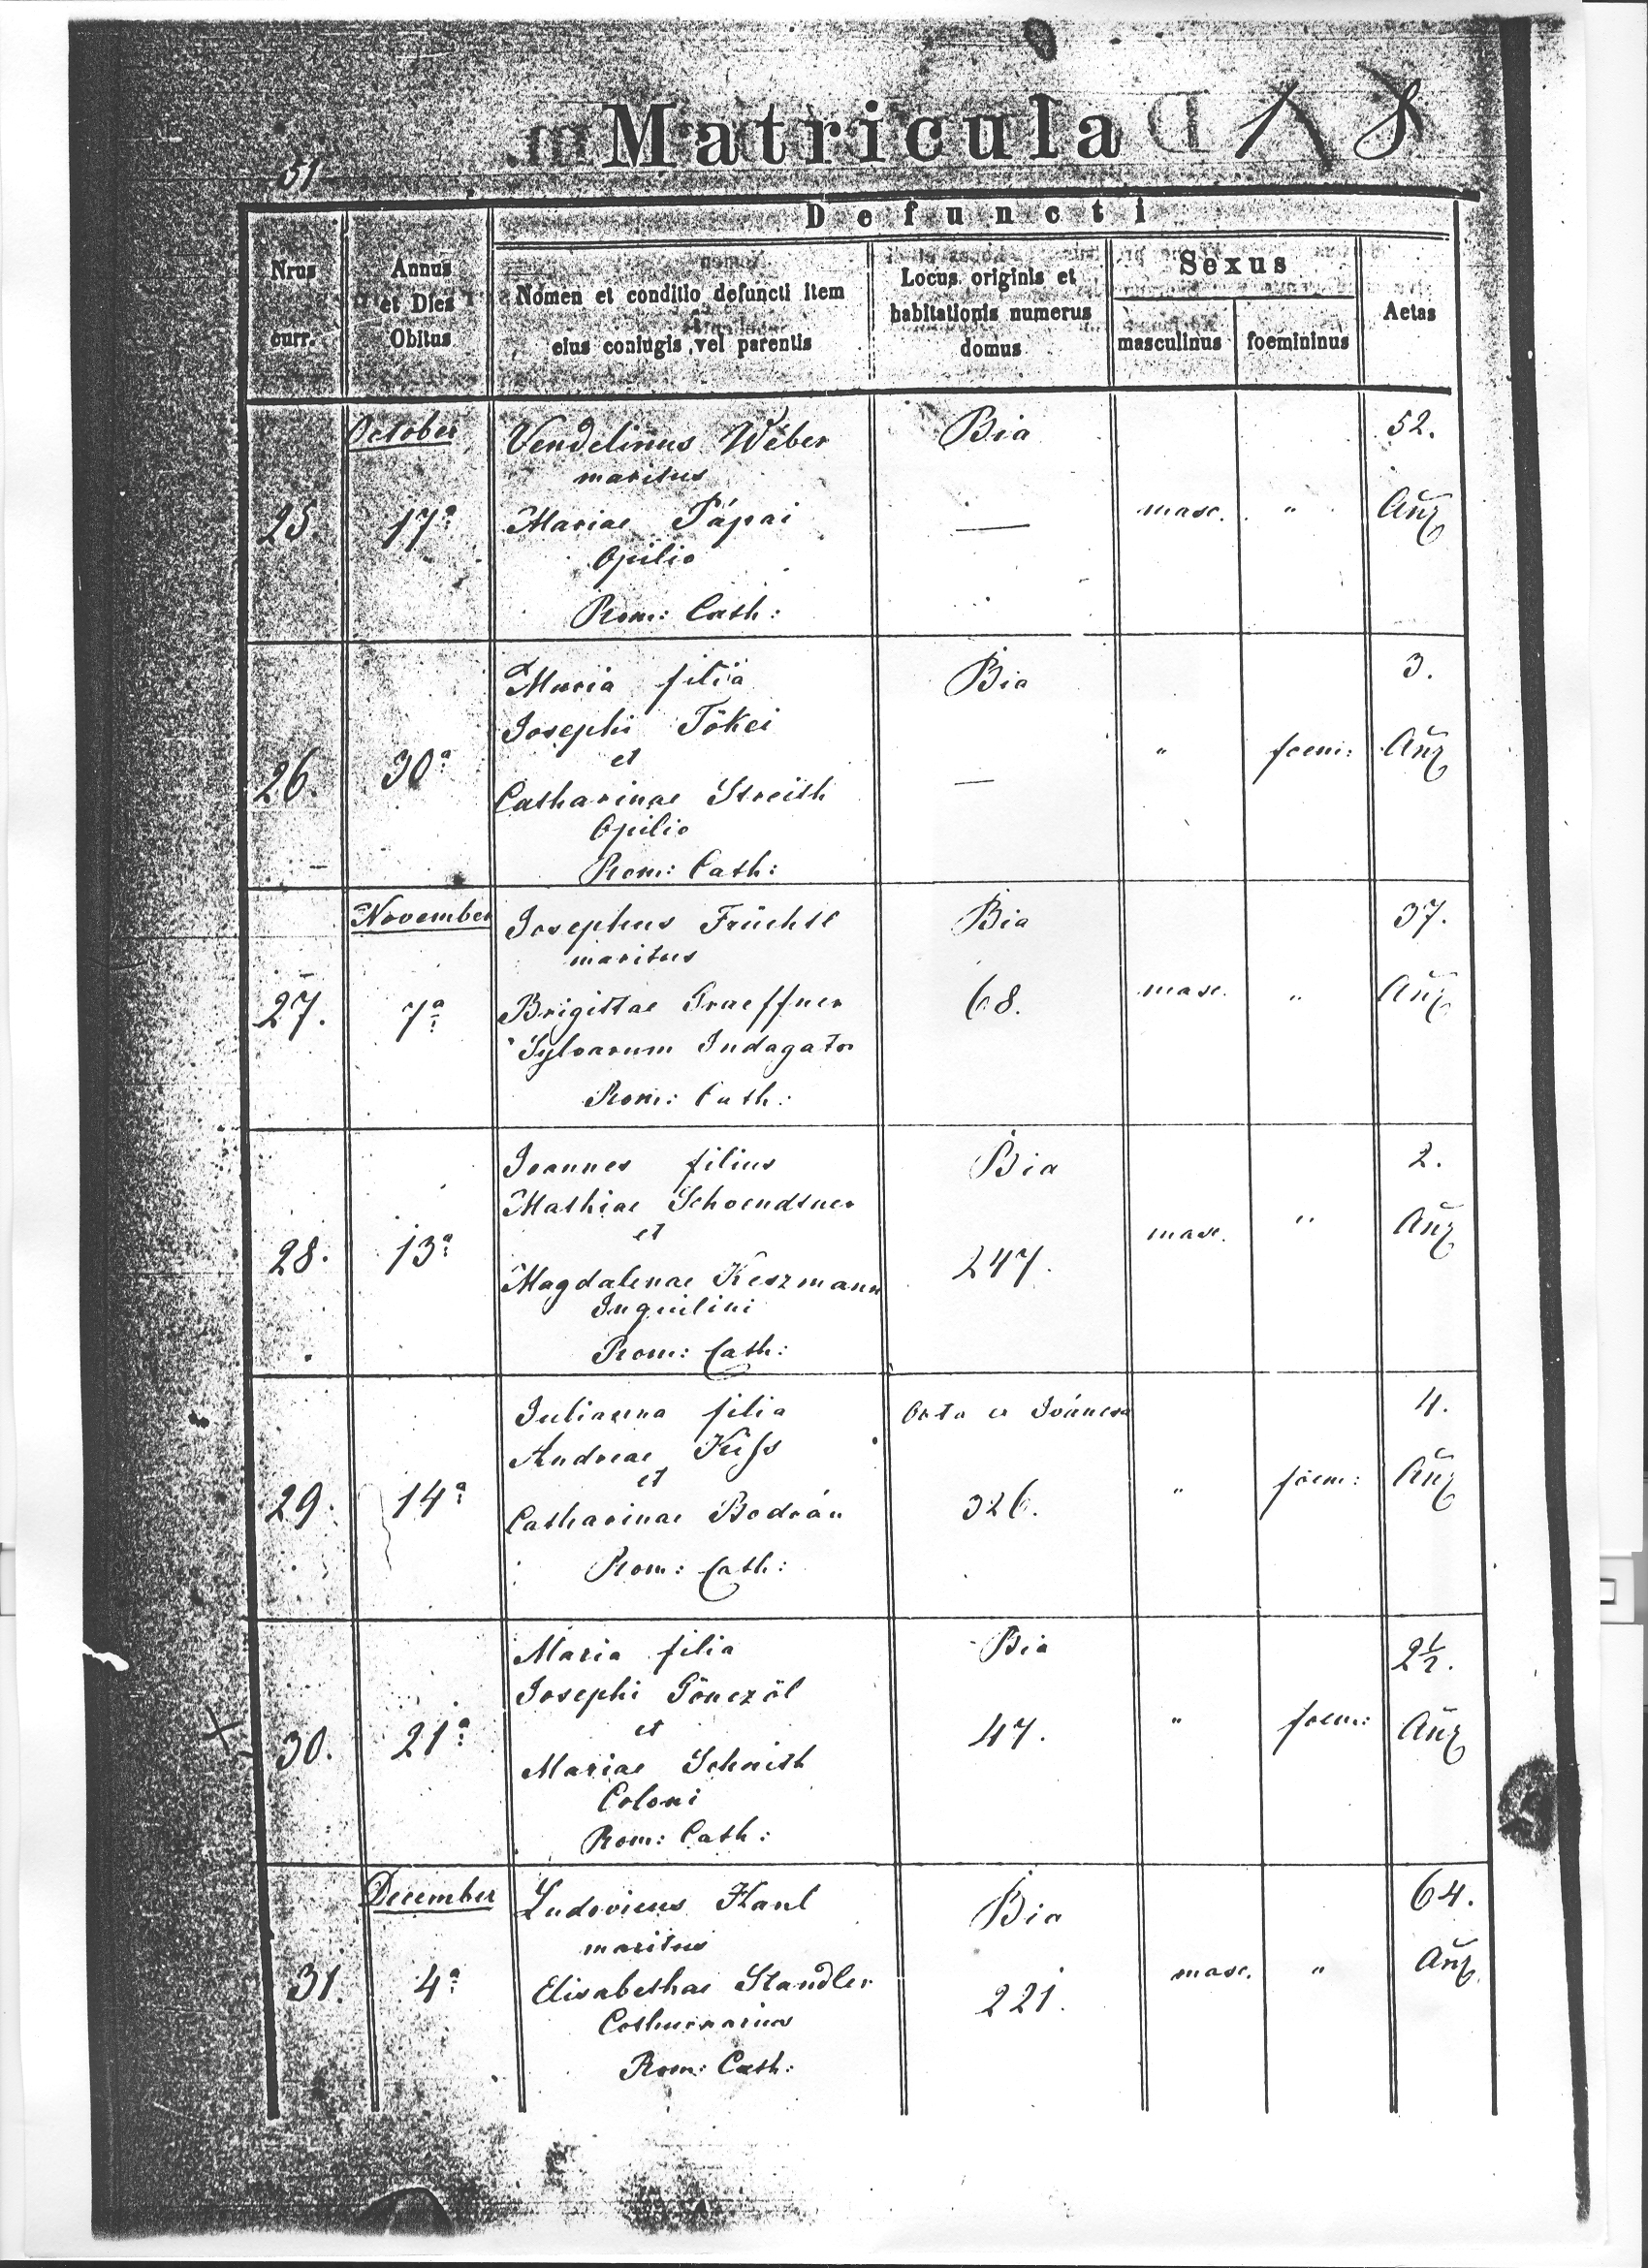 51
Matricula
Defuncti
Nrus curr.
Annus et Dies Obitus
Nomen et conditio defuncti item eius coniugis vel parentis
Locus originis et habitationis numerus domus
Sexus
masculinus
foemininus
Aetas
October
25.
17a
Vendelinus Wéber
maritus
Mariae Pápai
Opilio
Rom: Cath:
Bia
—
masc.
"
52.
Añz
26.
30a
Maria filia
Josephi Tökei
et
Catharinae Streith
Opilio
Rom: Cath:
Bia
—
"
foem:
3.
Añz
November
27.
7a
Josephus Früchtl
maritus
Brigittae Graeffner
Sylvarum Indagator
Rom: Cath:
Bia
68.
masc.
"
37.
Añz
28.
13a
Joannes filius
Mathiae Schoendtner
et
Magdalenae Keszmann
Inquilini
Rom: Cath:
Bia
247.
masc.
"
2.
Añz
29.
14a
Julianna filia
Andreae Kiss
et
Catharinae Bodrán
Rom: Cath:
Orta in Iváncsa
326.
"
foem:
4.
Añz
30.
21a
Maria filia
Josephi Gönczöl
et
Mariae Schmith
Coloni
Rom: Cath:
Bia
47.
"
foem:
2½.
Añz
December
31.
4a
Ludovicus Hanl
maritus
Elisabethae Standler
Cothurnarius
Rom: Cath:
Bia
221.
masc.
"
64.
Añz